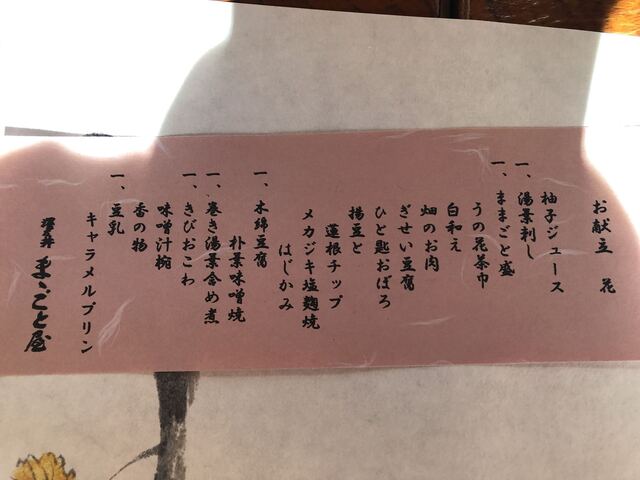 お献立 花
柚子ジュース
一、湯葉刺し
一、ままごと盛
うの花茶巾
白和え
畑のお肉
ぎせい豆腐
ひと匙おぼろ
揚豆と
蓮根チップ
メカジキ塩麹焼
はじかみ
一、木綿豆腐
朴葉味噌焼
一、巻き湯葉含め煮
一、きびおこわ
味噌汁椀
香の物
一、豆乳
キャラメルプリン
澤乃井 まゝごと屋